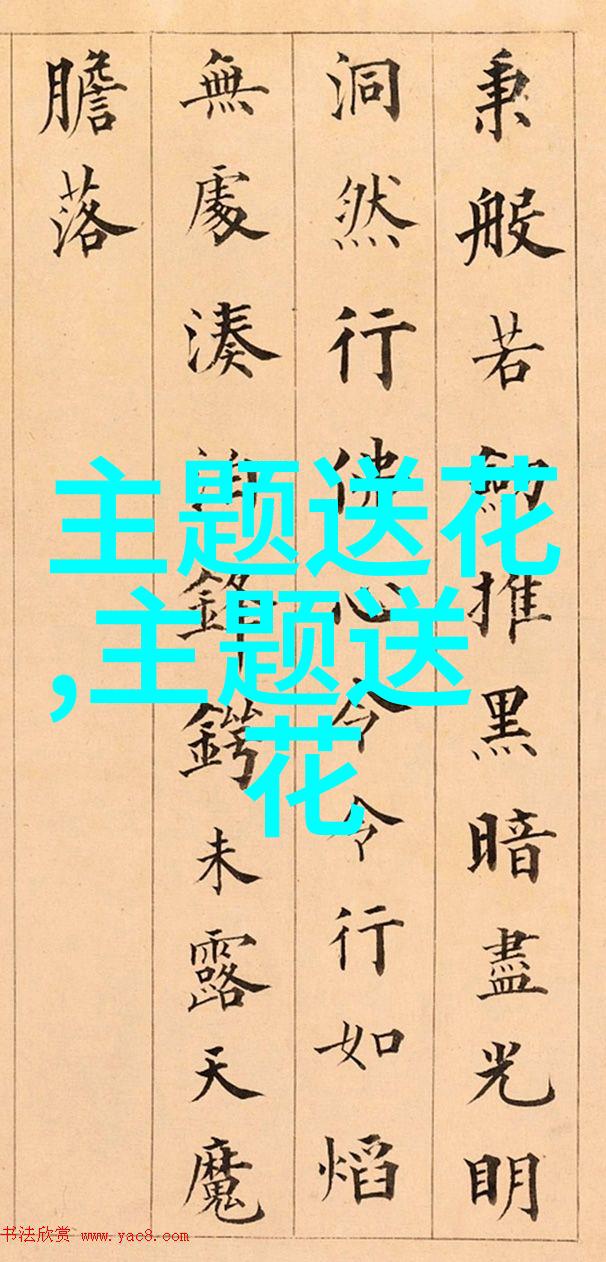 秉般若推黑暗盡光明
洞然行佛心令令行如熖
無處湊鋒鍔未露天魔
膽落
主题送花
,主题送
花
书法欣赏 www.yac8.com